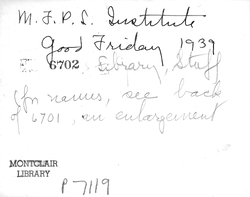 M.F.P.L. Institute
Good Friday 1939
6702 Library, Staff
(for names, see back
of 6701, an enlargement
MONTCLAIR
LIBRARY
P7119